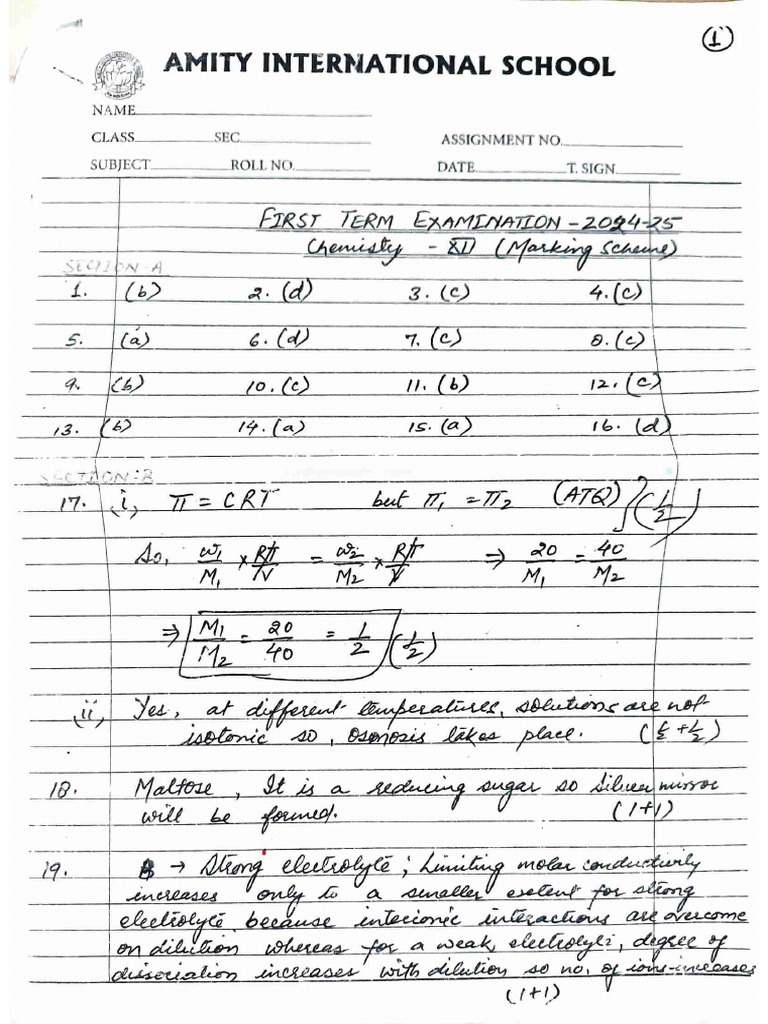 (1)
AMITY INTERNATIONAL SCHOOL
NAME
CLASS SEC. ASSIGNMENT NO.
SUBJECT ROLL NO. DATE T. SIGN.
FIRST TERM EXAMINATION - 2024-25
Chemistry - XII (Marking Scheme)
SECTION-A
1. (b) 2. (d) 3. (c) 4. (c)
5. (a) 6. (d) 7. (c) 8. (c)
9. (b) 10. (c) 11. (b) 12. (c)
13. (b) 14. (a) 15. (a) 16. (d)
SECTION:B
17. i, π = CRT but π₁ = π₂ (ATQ) } (1/2)
So, w₁/M₁ × RT/V = w₂/M₂ × RT/V ⇒ 20/M₁ = 40/M₂
⇒ M₁/M₂ = 20/40 = 1/2 (1/2)
ii, Yes, at different temperatures, solutions are not
isotonic so, osmosis takes place. (1/2 + 1/2)
18. Maltose, It is a reducing sugar so silver mirror
will be formed. (1+1)
19. B → Strong electrolyte; Limiting molar conductivity
increases only to a smaller extent for strong
electrolyte because interionic interactions are overcome
on dilution whereas for a weak electrolyte, degree of
dissociation increases with dilution so no. of ions increases
(1+1)